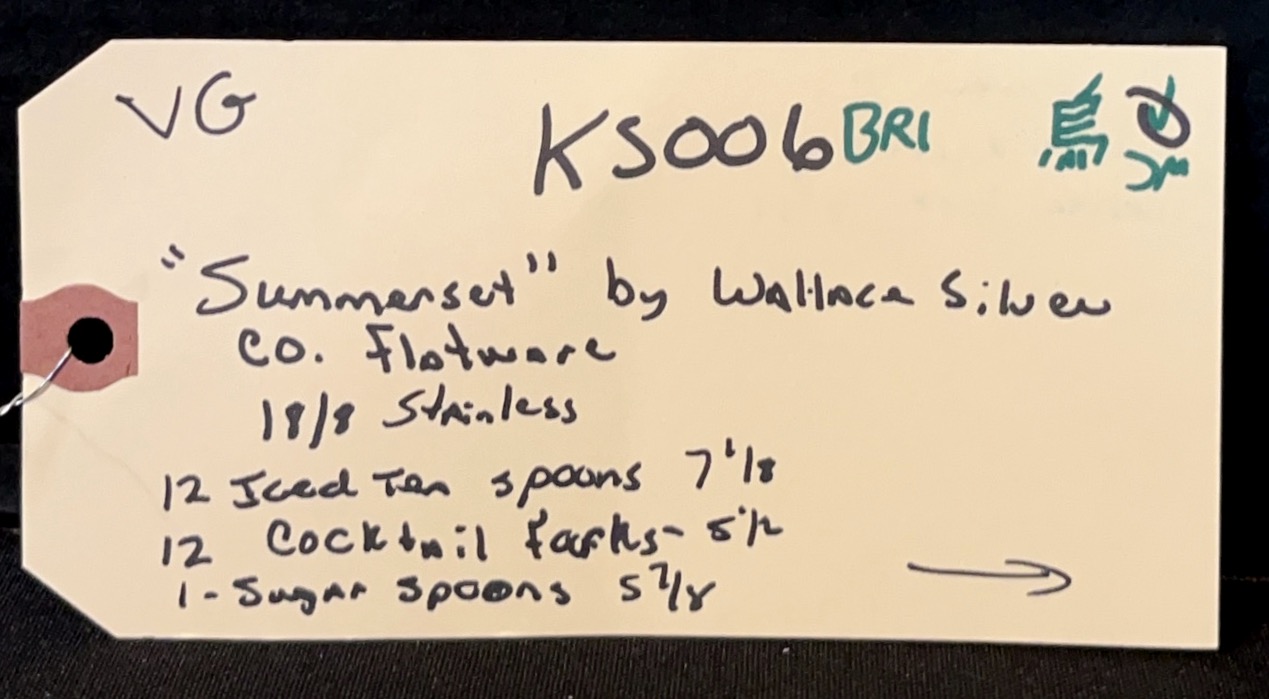 VG
KS006 BRI
"Summerset" by Wallace Silver
Co. Flatware
18/8 Stainless
12 Iced Tea spoons 7 1/8
12 Cocktail forks - 5 1/2
1 - Sugar spoons 5 7/8